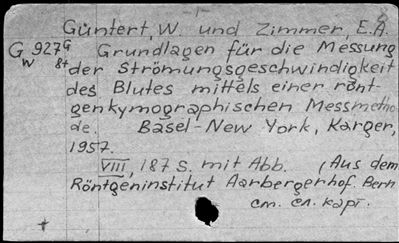 Güntert, W. und Zimmer, E.A.
G 927 G Grundlagen für die Messung
w 8+ der Strömungsgeschwindigkeit
des Blutes mittels einer rönt-
genkymographischen Messmetho-
de. Basel-New York, Karger,
1957.
VIII, 187 S. mit Abb. (Aus dem
Röntgeninstitut Aarbergerhof Bern
см. сл. карт.